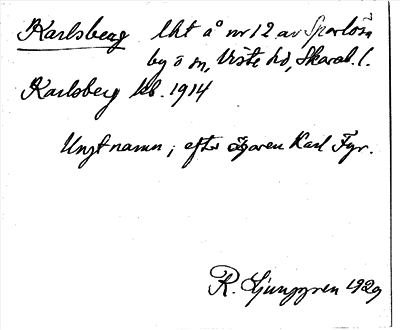 Karlsberg lht å nr 12 av Sparlösa
by o sn, Viste hd, Skarab. l.
Karlsberg kb. 1914
Ungt namn; efter ägaren Karl Fyr.
R. Ljunggren 1929